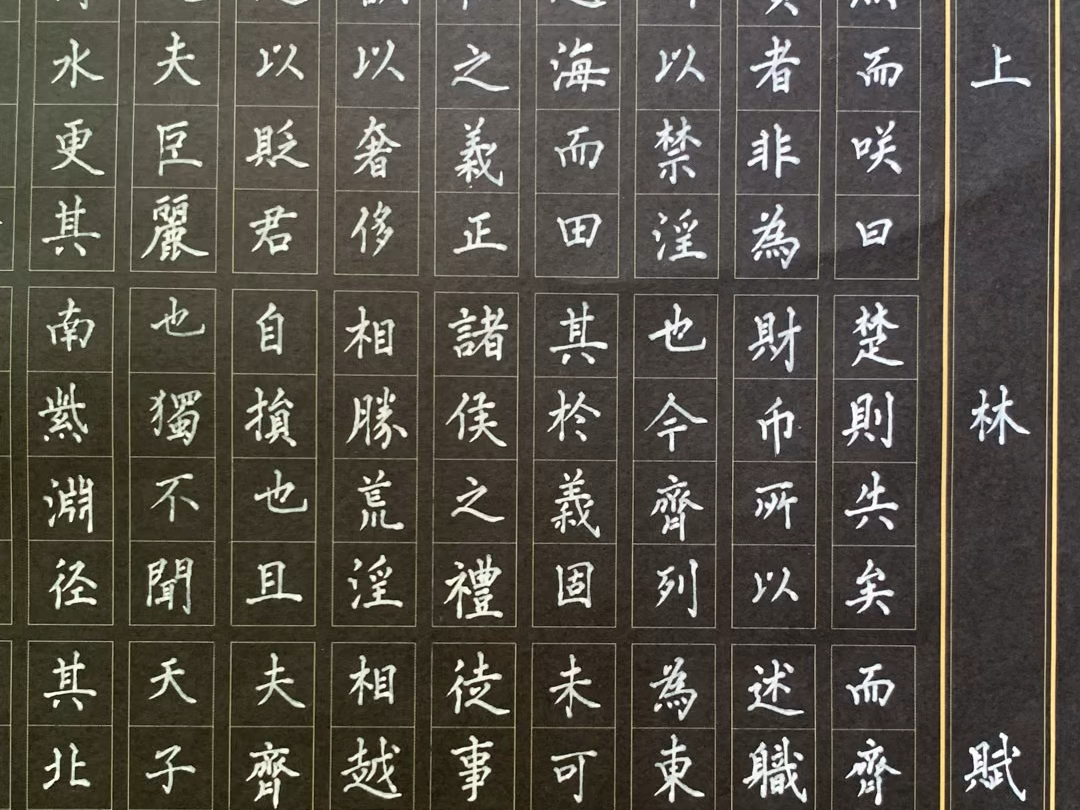 上林賦
而咲曰楚則失矣而齊
者非為財币所以述職
以禁淫也今齊列為東
海而田其於義固未可
之義正諸侯之禮徒事
以奢侈相勝荒淫相越
以貶君自損也且夫齊
夫巨麗也獨不聞天子
水更其南紫淵径其北